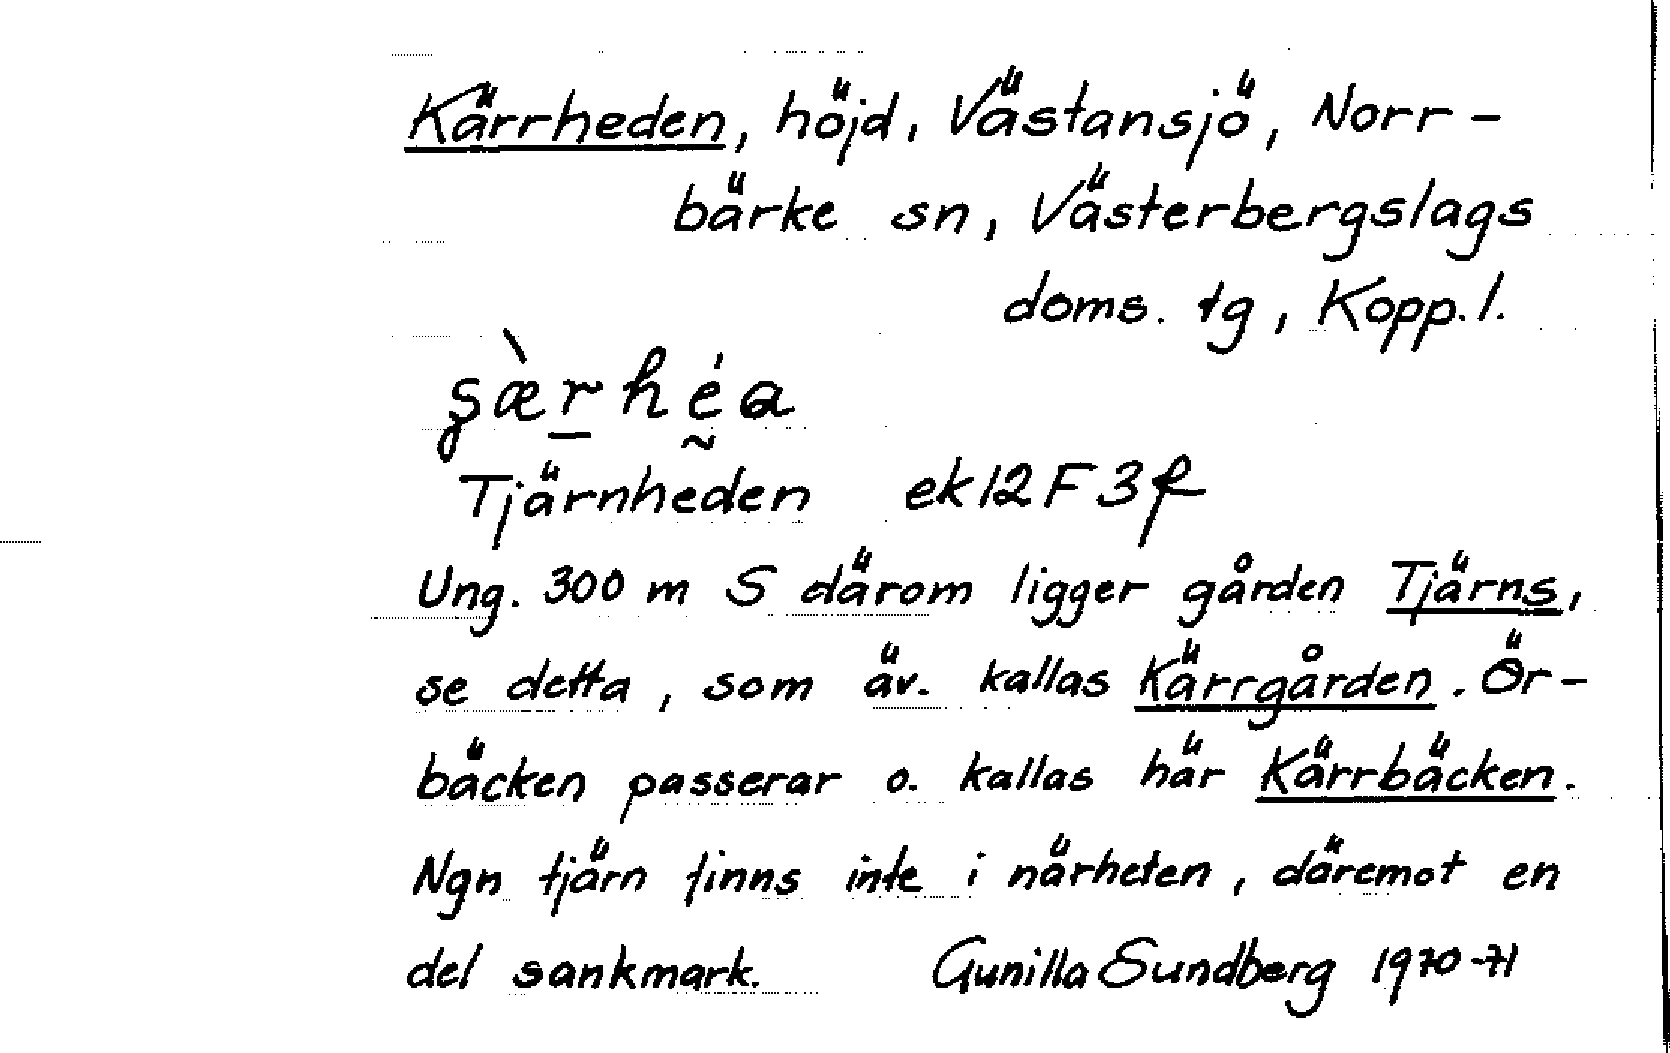 Kärrheden, höjd, Västansjö, Norr-
bärke sn, Västerbergslags
doms. tg, Kopp.l.
Tjärnheden ek 12 F 3 f
Ung. 300 m S därom ligger gården Tjärns,
se detta, som äv. kallas Kärrgården. Ör-
bäcken passerar o. kallas här Kärrbäcken.
Ngn tjärn finns inte i närheten, däremot en
del sankmark. Gunilla Sundberg 1970-71